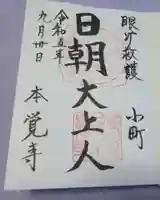 眼病救護
小町
日朝大上人
令和五年
九月廿日
本覚寺